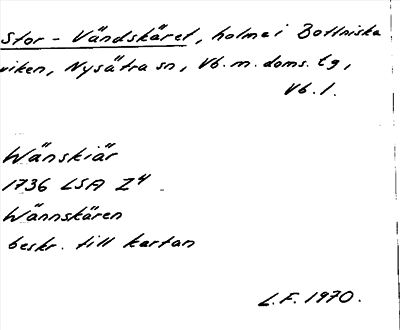 Stor-Vändskäret, holme i Bottniska
viken, Nysätra sn, Vb. m. doms. lg,
Vb. l.
Wänskiär
1736 LSA Z4
Wännskären
beskr. till kartan
L.F. 1970.